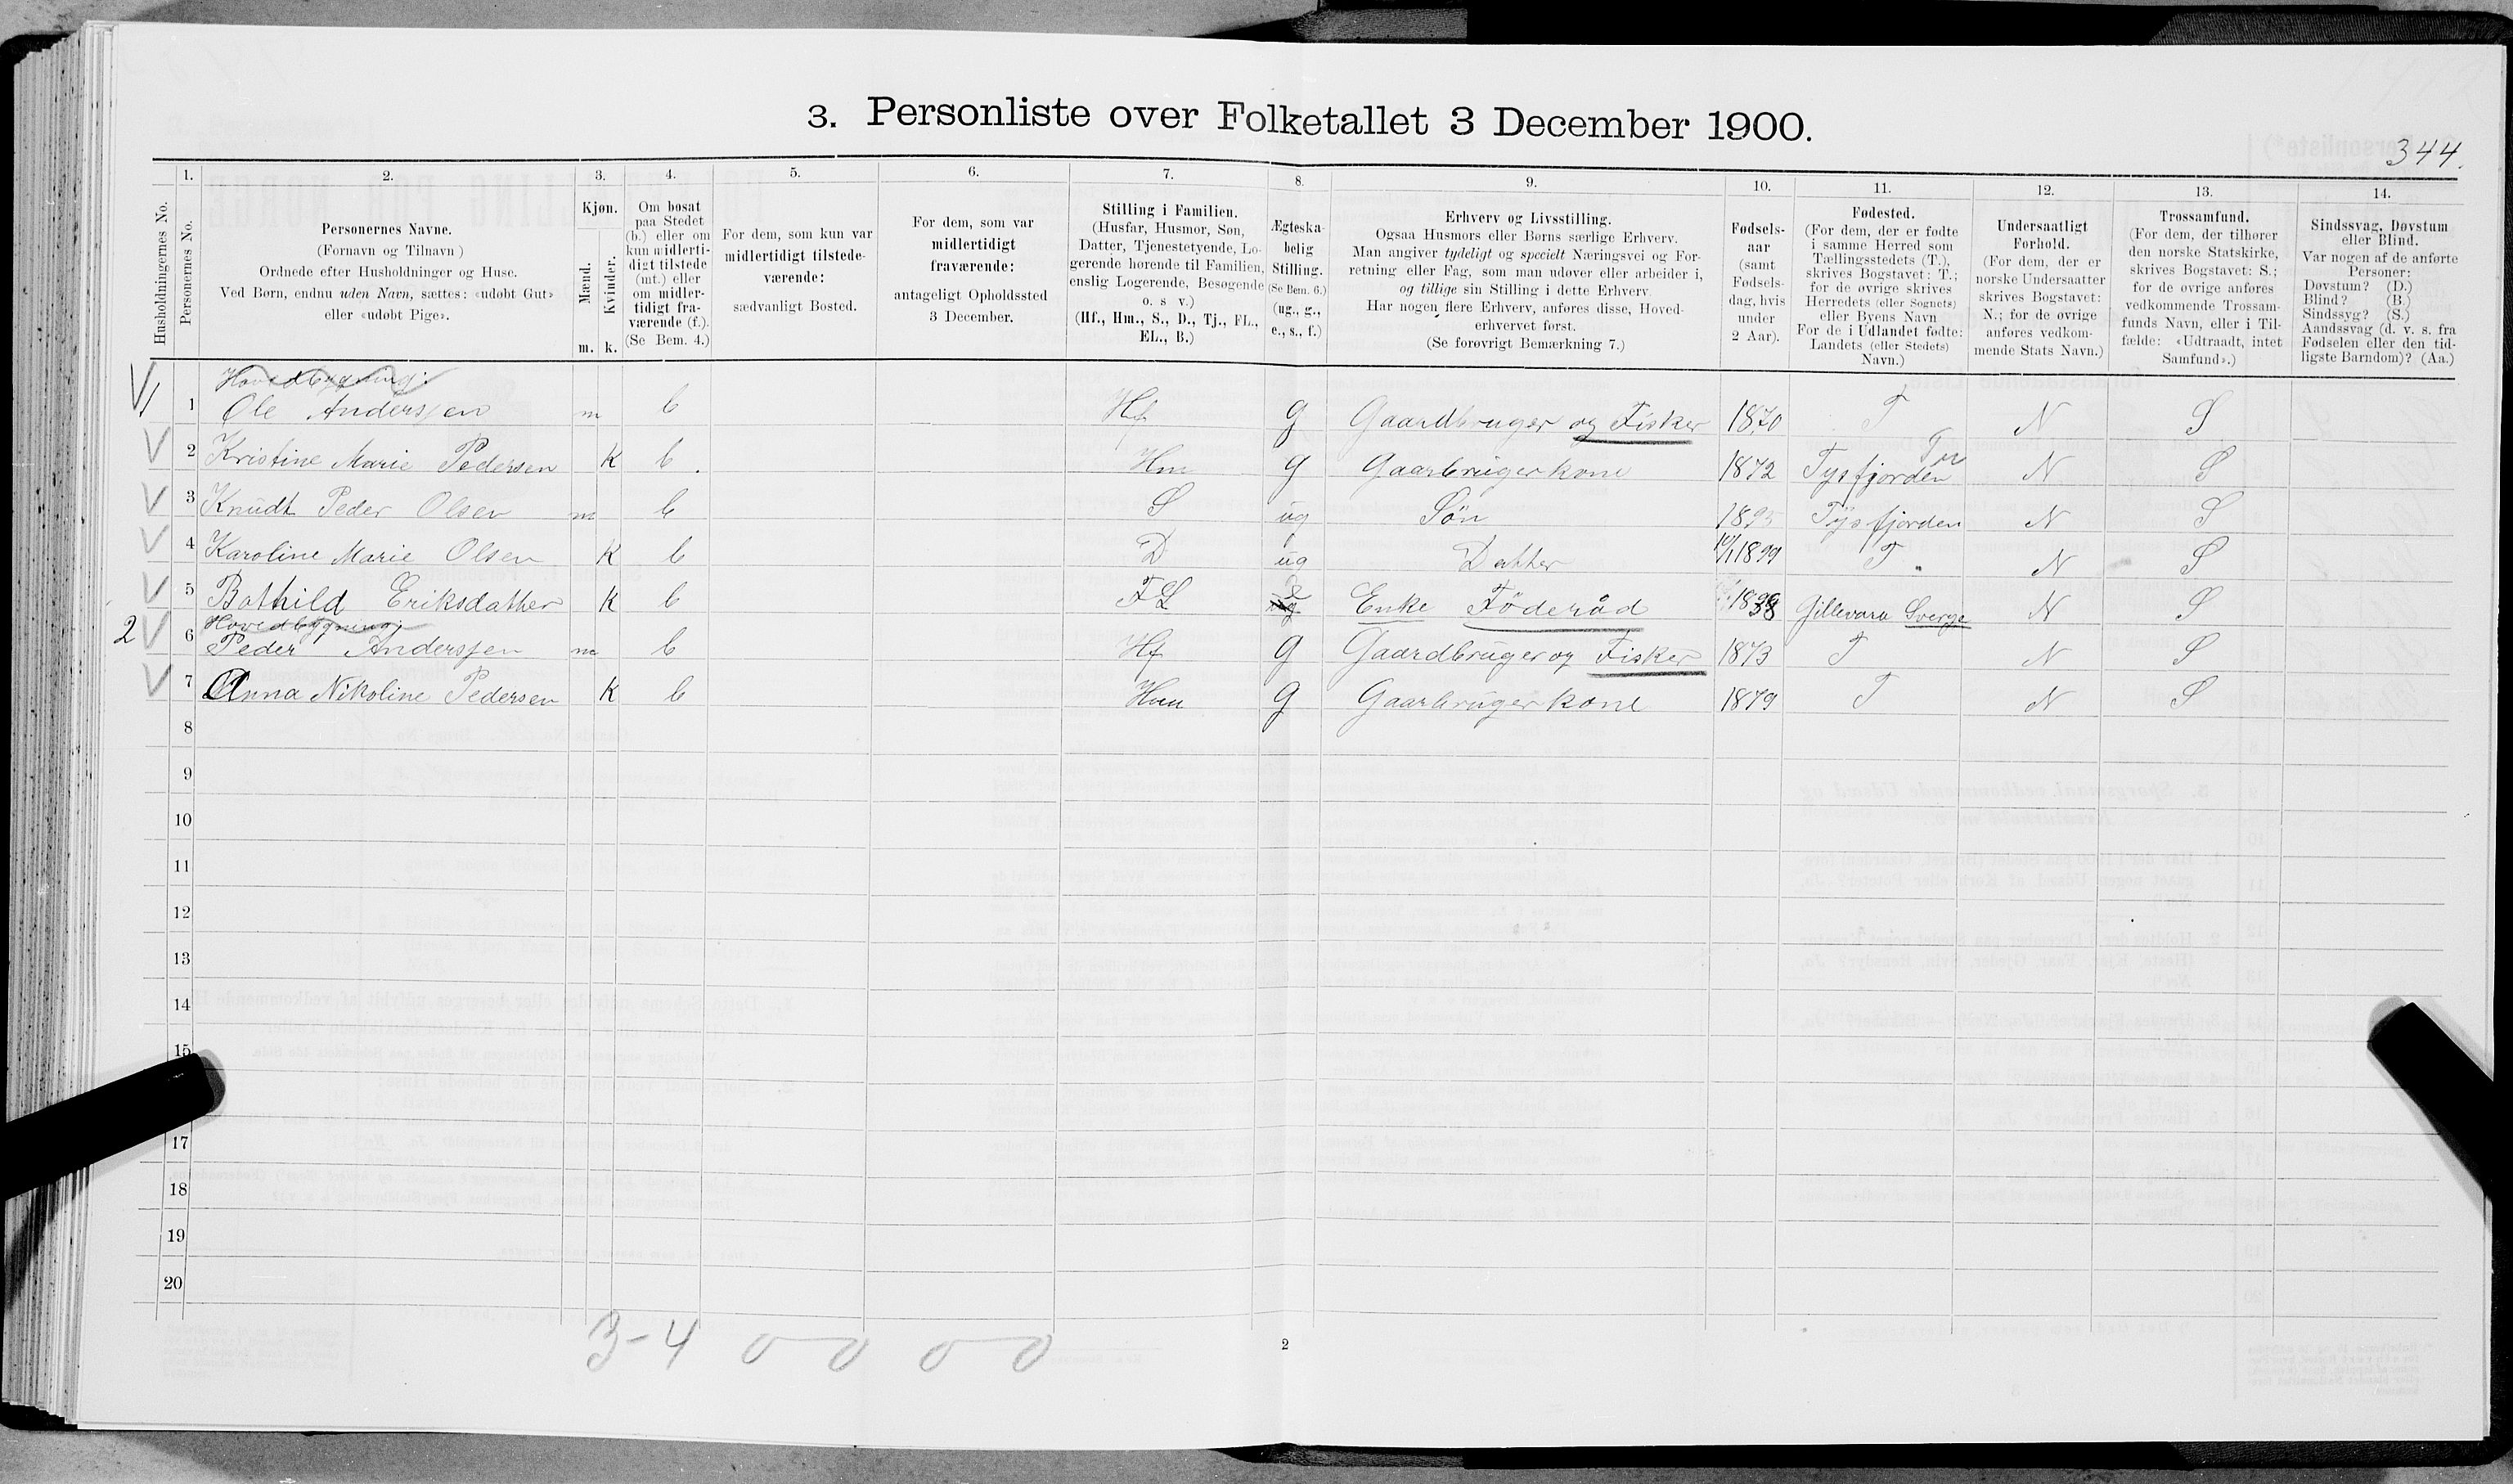 3. Personliste over Folketallet 3 December 1900.
344.
1. 2. 3. 4. 5. 6. 7. 8. 9. 10. 11. 12. 13. 14.
Husholdningernes No.
Personernes No.
Personernes Navne.
(Fornavn og Tilnavn)
Ordnede efter Husholdninger og Huse.
Ved Børn, endnu uden Navn, sættes: «udøbt Gut»
eller «udøbt Pige».
Kjøn.
Mænd.
Kvinder.
m. k.
Om bosat
paa Stedet
(b.) eller om
kun midlerti-
digt tilstede
(mt.) eller
om midler-
tidigt fra-
værende (f.).
(Se Bem. 4.)
For dem, som kun var
midlertidigt tilstede-
værende:
sædvanligt Bosted.
For dem, som var
midlertidigt
fraværende:
antageligt Opholdssted
3 December.
Stilling i Familien.
(Husfar, Husmor, Søn,
Datter, Tjenestetyende, Lo-
gerende hørende til Familien,
enslig Logerende, Besøgende
o. s v.)
(Hf., Hm., S., D., Tj., FL.,
EL., B.)
Ægteska-
belig
Stilling.
(Se Bem. 6.)
(ug., g.,
e., s., f.)
Erhverv og Livsstilling.
Ogsaa Husmors eller Børns særlige Erhverv.
Man angiver tydeligt og specielt Næringsvei og For-
retning eller Fag, som man udøver eller arbeider i,
og tillige sin Stilling i dette Erhverv.
Har nogen flere Erhverv, anføres disse, Hoved-
erhvervet først.
(Se forøvrigt Bemærkning 7.)
Fødsels-
aar
(samt
Fødsels-
dag, hvis
under
2 Aar).
Fødested.
(For dem, der er fødte
i samme Herred som
Tællingsstedets (T.),
skrives Bogstavet: T.;
for de øvrige skrives
Herredets (eller Sognets)
eller Byens Navn
For de i Udlandet fødte:
Landets (eller Stedets)
Navn.)
Undersaatligt
Forhold.
(For dem, der er
norske Undersaatter
skrives Bogstavet:
N.; for de øvrige
anføres vedkom-
mende Stats Navn.)
Trossamfund.
(For dem, der tilhører
den norske Statskirke,
skrives Bogstavet: S.;
for de øvrige anføres
vedkommende Trossam-
funds Navn, eller i Til-
fælde: «Udtraadt, intet
Samfund».)
Sindssvag, Døvstum
eller Blind.
Var nogen af de anførte
Personer:
Døvstum? (D.)
Blind? (B.)
Sindssyg? (S.)
Aandssvag (d. v. s. fra
Fødselen eller den tid-
ligste Barndom)? (Aa.)
Hovedbygning:
1 1 Ole Anderssen m b Hf g Gaardbruger og Fisker 1870 T N S
2 Kristine Marie Pedersen K b. Hm g Gaarbrugerkone 1872 Tysfjorden N S
3 Knudt Peder Olsen m b S ug Sön 1895 Tysfjorden N S
4 Karoline Marie Olsen K b D ug Datter 1899 T N S
5 Bothild Eriksdatter K b FL e Enke Föderåd 1838 Gillevara Sverge N S
Hovedbygning
2 6 Peder Anderssen m b Hf g Gaardbruger og Fisker 1873 T N S
7 Anna Nikoline Pedersen K b Hm g Gaarbrugerkone 1879 T N S
8
9
10
11
12
13
14
15
17
18
19
20
3-4 0 0 0 0
2